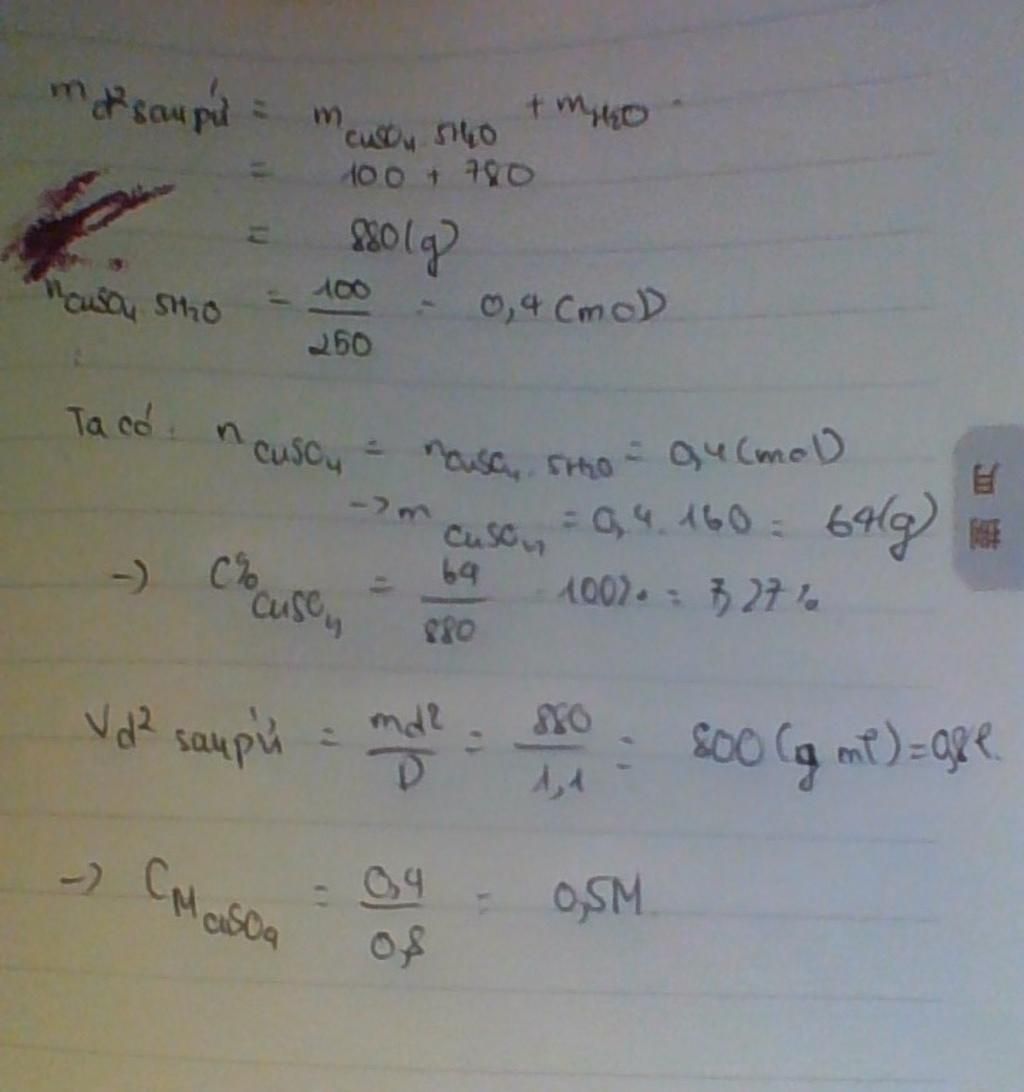 m d² saupứ = m CuSO4 5H2O + m H2O
= 100 + 780
= 880(g)
n CuSO4 5H2O = 100/250 = 0,4 (mol)
Ta có: n CuSO4 = n CuSO4. 5H2O = 0,4 (mol)
-> m CuSO4 = 0,4. 160 = 64(g)
-> C% CuSO4 = 64/880 . 100% = 7,27%
Vd² saupứ = md²/D = 880/1,1 = 800 (g ml) = 0,8l.
-> CM CuSO4 = 0,4/0,8 = 0,5M
月